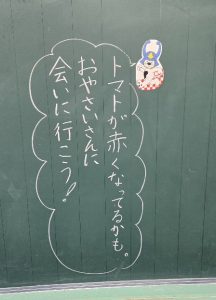 トマトが赤くなってるかも。
おやさいさんに
会いに行こう!